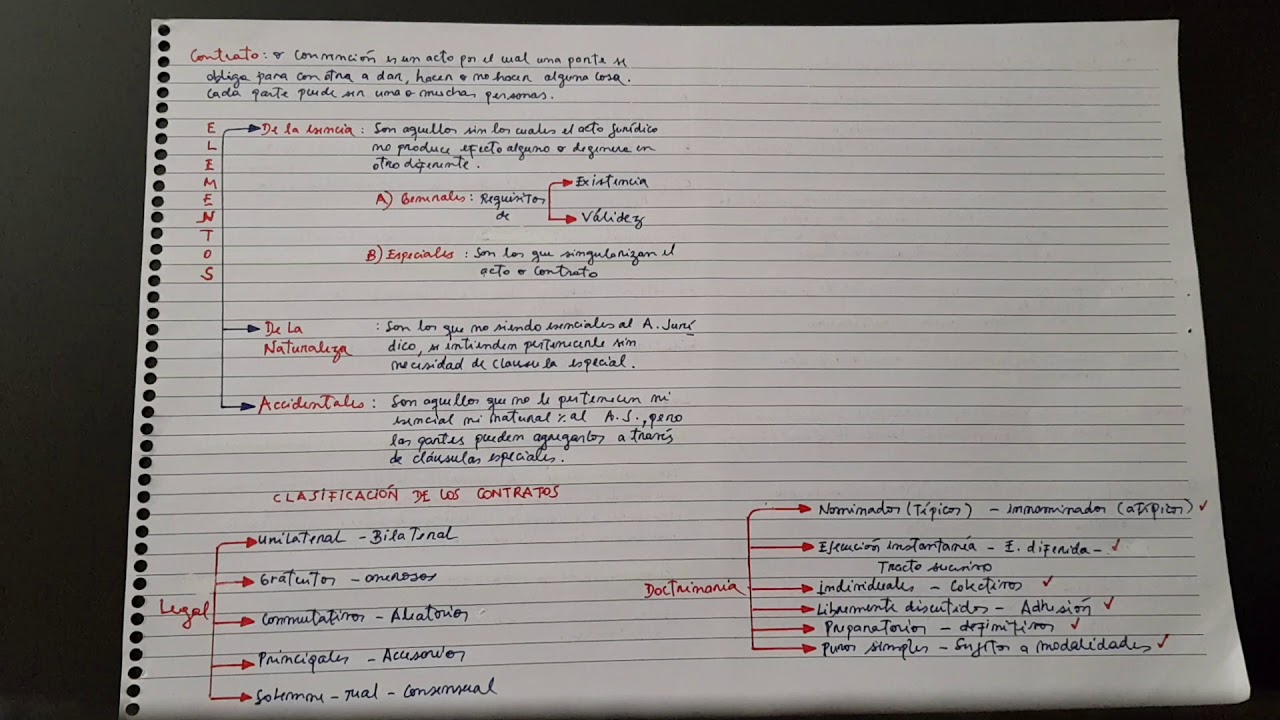 Contrato: o convención es un acto por el cual una parte se
obliga para con otra a dar, hacer o no hacer alguna cosa.
Cada parte puede ser una o muchas personas.
ELEMENTOS
De la esencia: Son aquellos sin los cuales el acto jurídico
no produce efecto alguno o degenera en
otro diferente.
A) Generales: Requisitos
de
Existencia
Válidez
B) Especiales: Son los que singularizan el
acto o contrato
De La
Naturaleza
: Son los que no siendo esenciales al A. Jurí
dico, se entienden pertenecerle sin
necesidad de clausula especial.
Accidentales: Son aquellos que no le pertenecen ni
esencial ni natural % al A.J., pero
las partes pueden agregarlos a través
de cláusulas especiales.
CLASIFICACIÓN DE LOS CONTRATOS
Legal
Unilateral - Bilateral
Gratuitos - onerosos
Conmutativos - Aleatorios
Principales - Accesorios
Solemne - real - Consensual
Doctrinaria
Nominados (típicos) - innominados (atípicos) ✓
Ejecución instantanía - E. diferida - ✓
Tracto sucesivo
Individuales - Colectivos ✓
Libremente discutidos - Adhesión ✓
Preparatorios - definitivos ✓
Puros simples - Sujetos a modalidades ✓